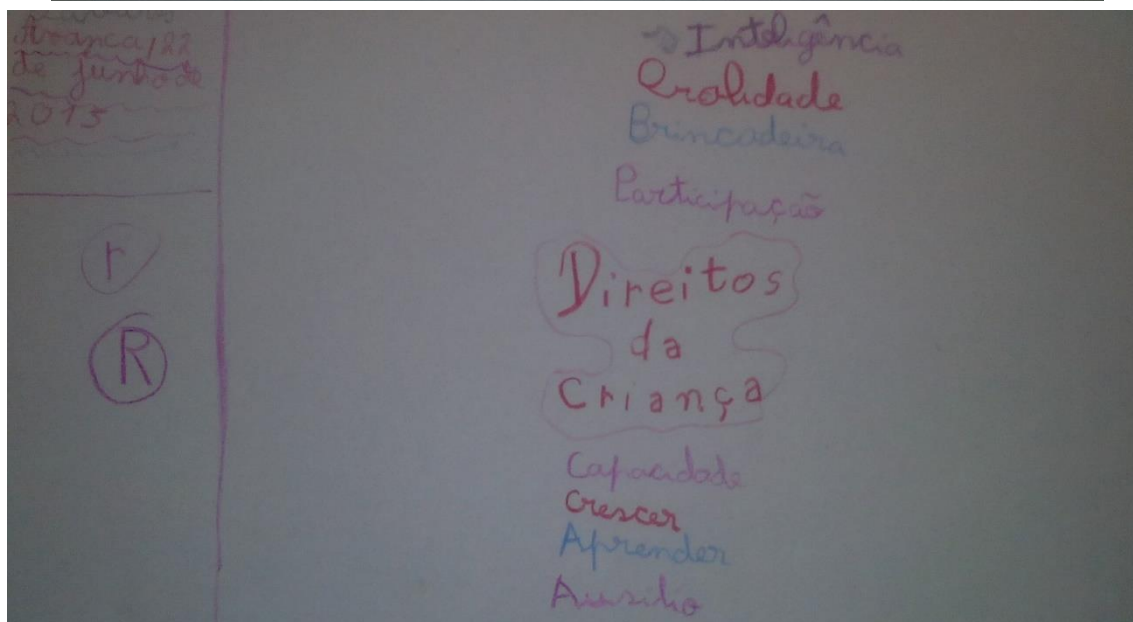 Avanca, 22
de junho de
2015
r
R
→ Inteligência
Brincadeira
Participação
Direitos
da
Criança
Capacidade
Crescer
Aprender
Auxilio